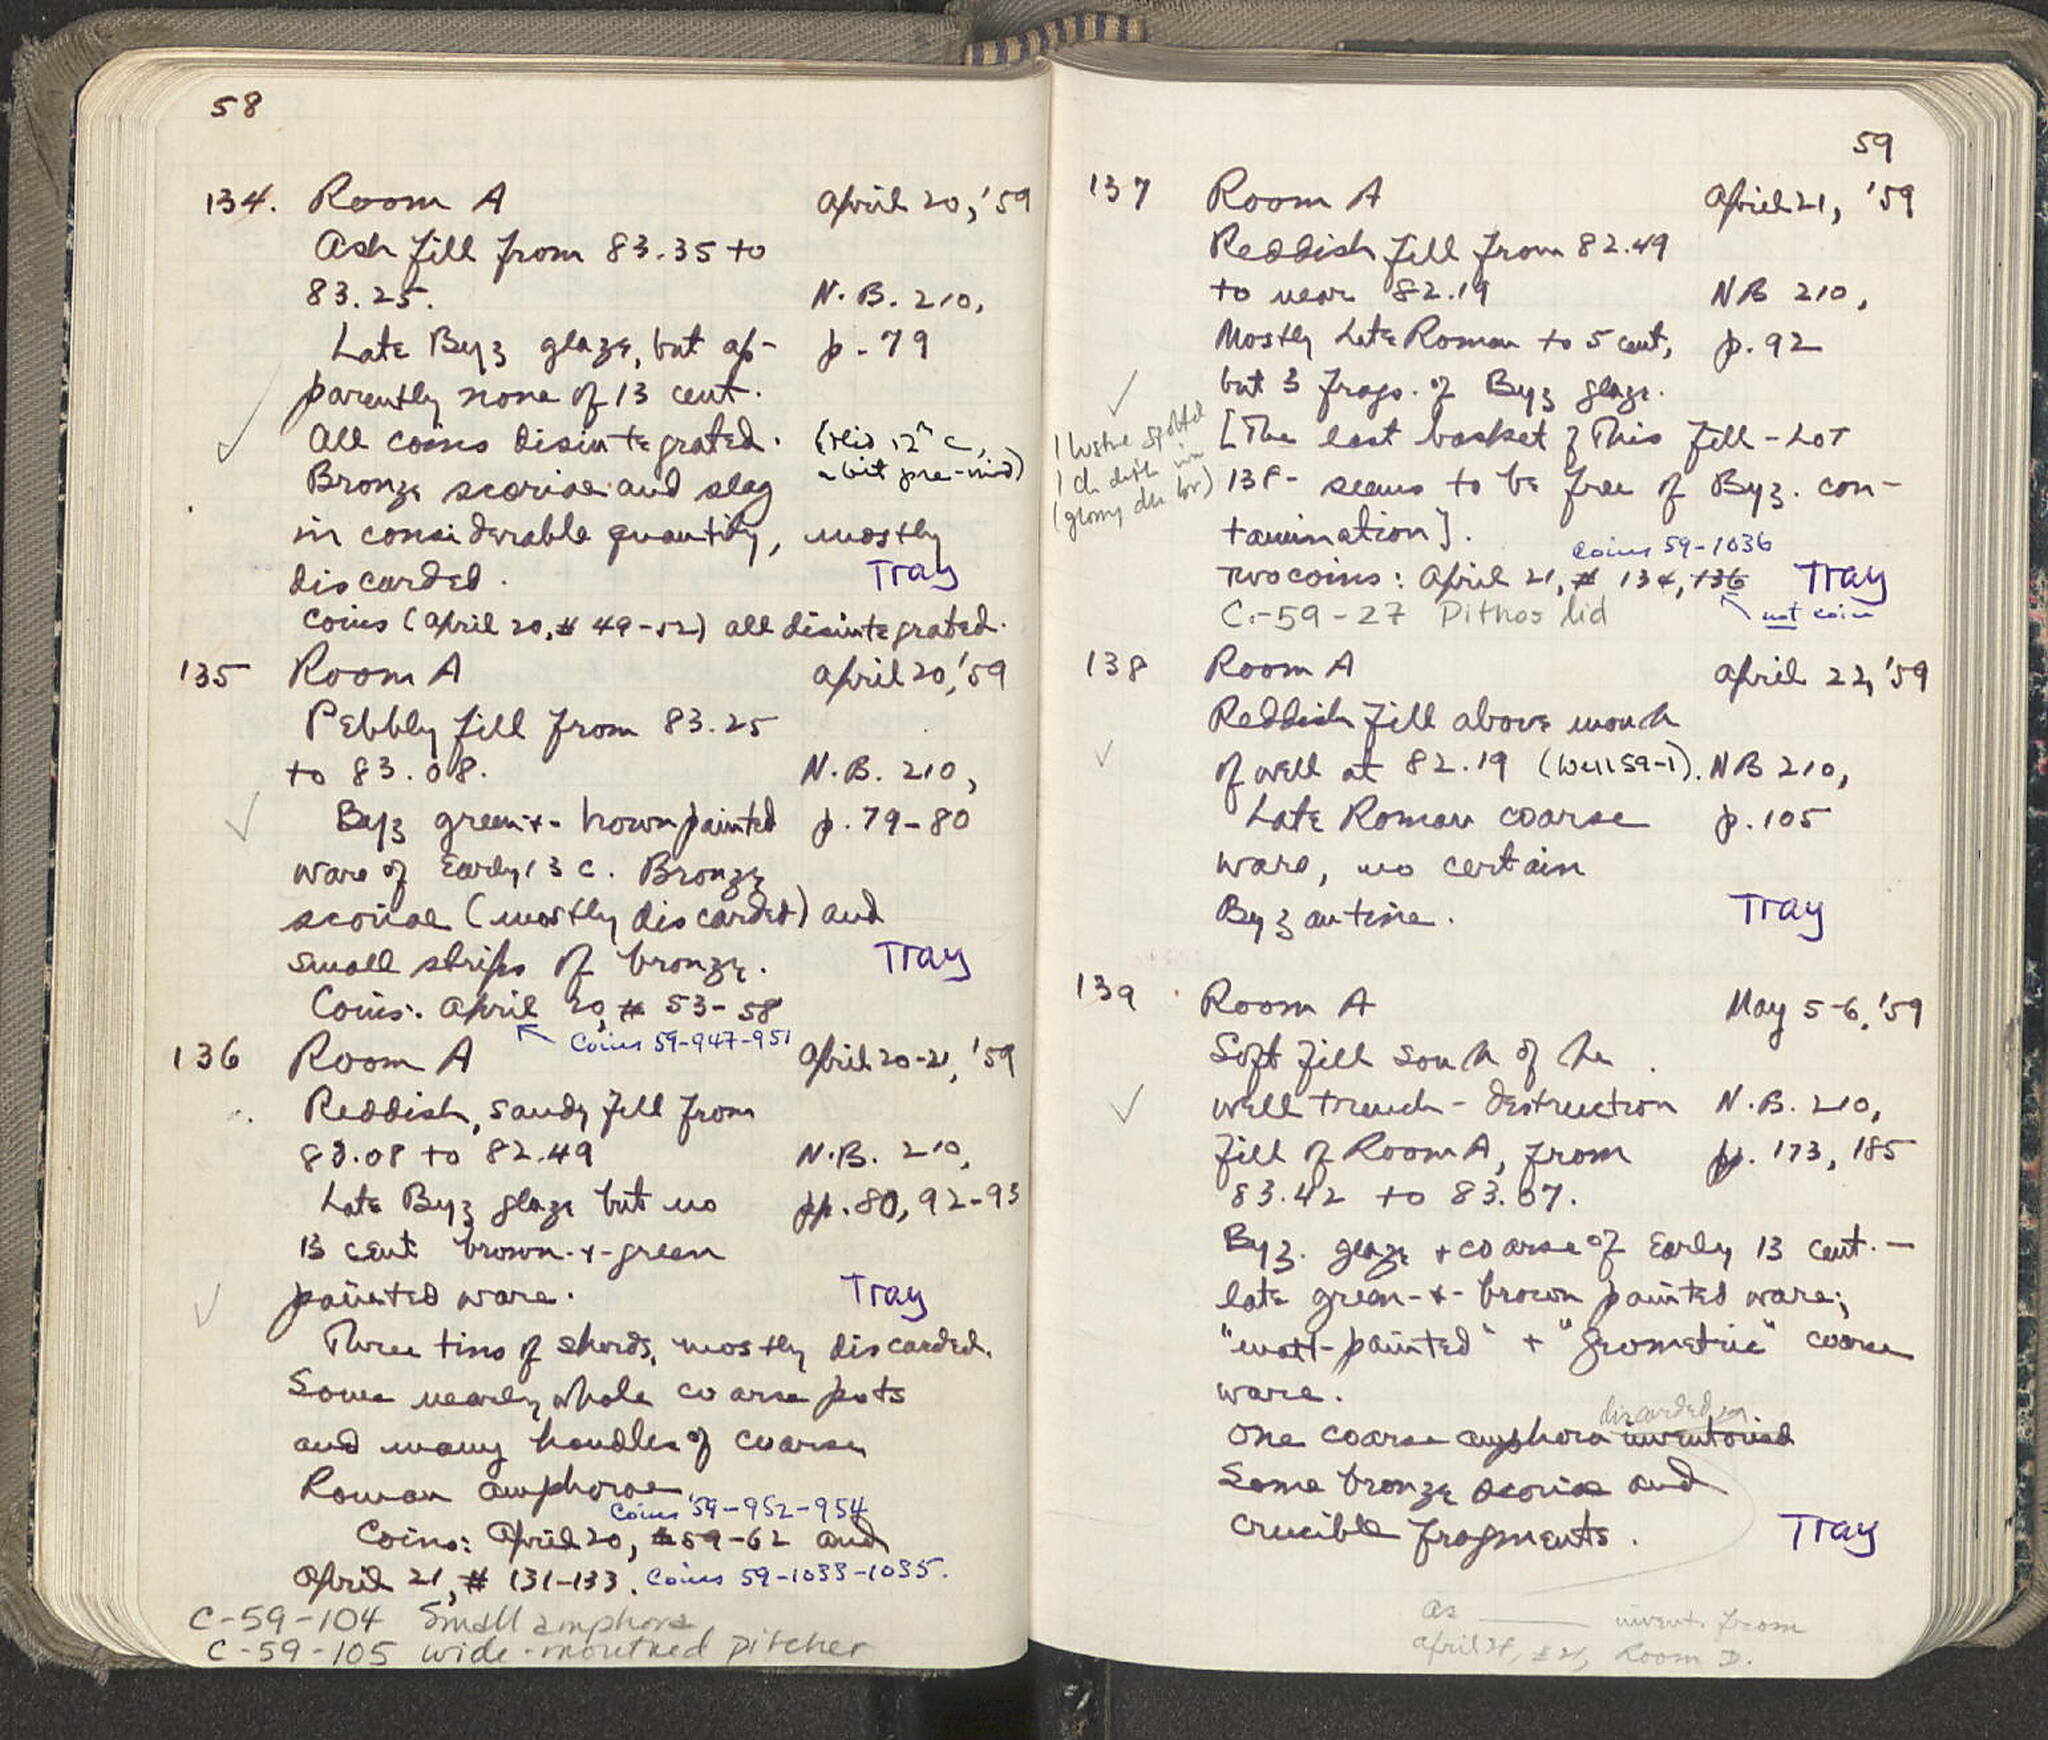 58
134. Room A April 20, '59
Ash fill from 83.35 to
83.25. N.B. 210,
Late Byz glaze, but ap- p. 79
parently none of 13 cent.
All coins disintegrated. (Mid 12th C,
a bit pre-mid)
Bronze scoriae and slag
in considerable quantity, mostly
discarded. Tray
Coins (April 20, # 49-52) all disintegrated.
135 Room A April 20, '59
Pebbly fill from 83.25
to 83.08. N.B. 210,
Byz green-+-brown painted p. 79-80
ware of Early 13 C. Bronze
scoriae (mostly discarded) and
small strips of bronze. Tray
Coins: April 20, # 53-58
Coins 59-947-951
136 Room A April 20-21, '59
Reddish, sandy fill from
83.08 to 82.49 N.B. 210,
Late Byz glaze but no pp. 80, 92-93
13 cent brown-+-green
painted ware. Tray
Three tins of sherds, mostly discarded.
Some nearly whole coarse pots
and many handles of coarse
Roman amphorae.
Coins 59-952-954
Coins: April 20, # 59-62 and
April 21, # 131-133. Coins 59-1033-1035.
C-59-104 Small amphora
C-59-105 wide-mouthed pitcher
59
137 Room A April 21, '59
Reddish fill from 82.49
to near 82.19 NB 210,
Mostly Late Roman to 5 cent, p. 92
but 3 frags. of Byz glaze.
[The last basket of this fill - Lot
138 - seems to be free of Byz. con-
tamination].
1 lustre spotted
1 ch dish
Coins 59-1036
Two coins: April 21, # 134, 136 Tray
not coin
C-59-27 Pithos lid
138 Room A April 22, '59
Reddish fill above mouth
of well at 82.19 (Well 59-1). NB 210,
Late Roman coarse p. 105
ware, no certain
Byzantine. Tray
139 Room A May 5-6, '59
Soft fill south of the
well trench - destruction N.B. 210,
fill of Room A, from pp. 173, 185
83.42 to 83.07.
Byz. glaze + coarse of Early 13 cent. -
late green-+-brown painted ware;
"matt-painted" + "geometric" coarse
ware.
discarded
One coarse amphora inventoried
Some bronze scoriae and
crucible fragments. Tray
as ——— invent. from
April 21, # 21, Room D.